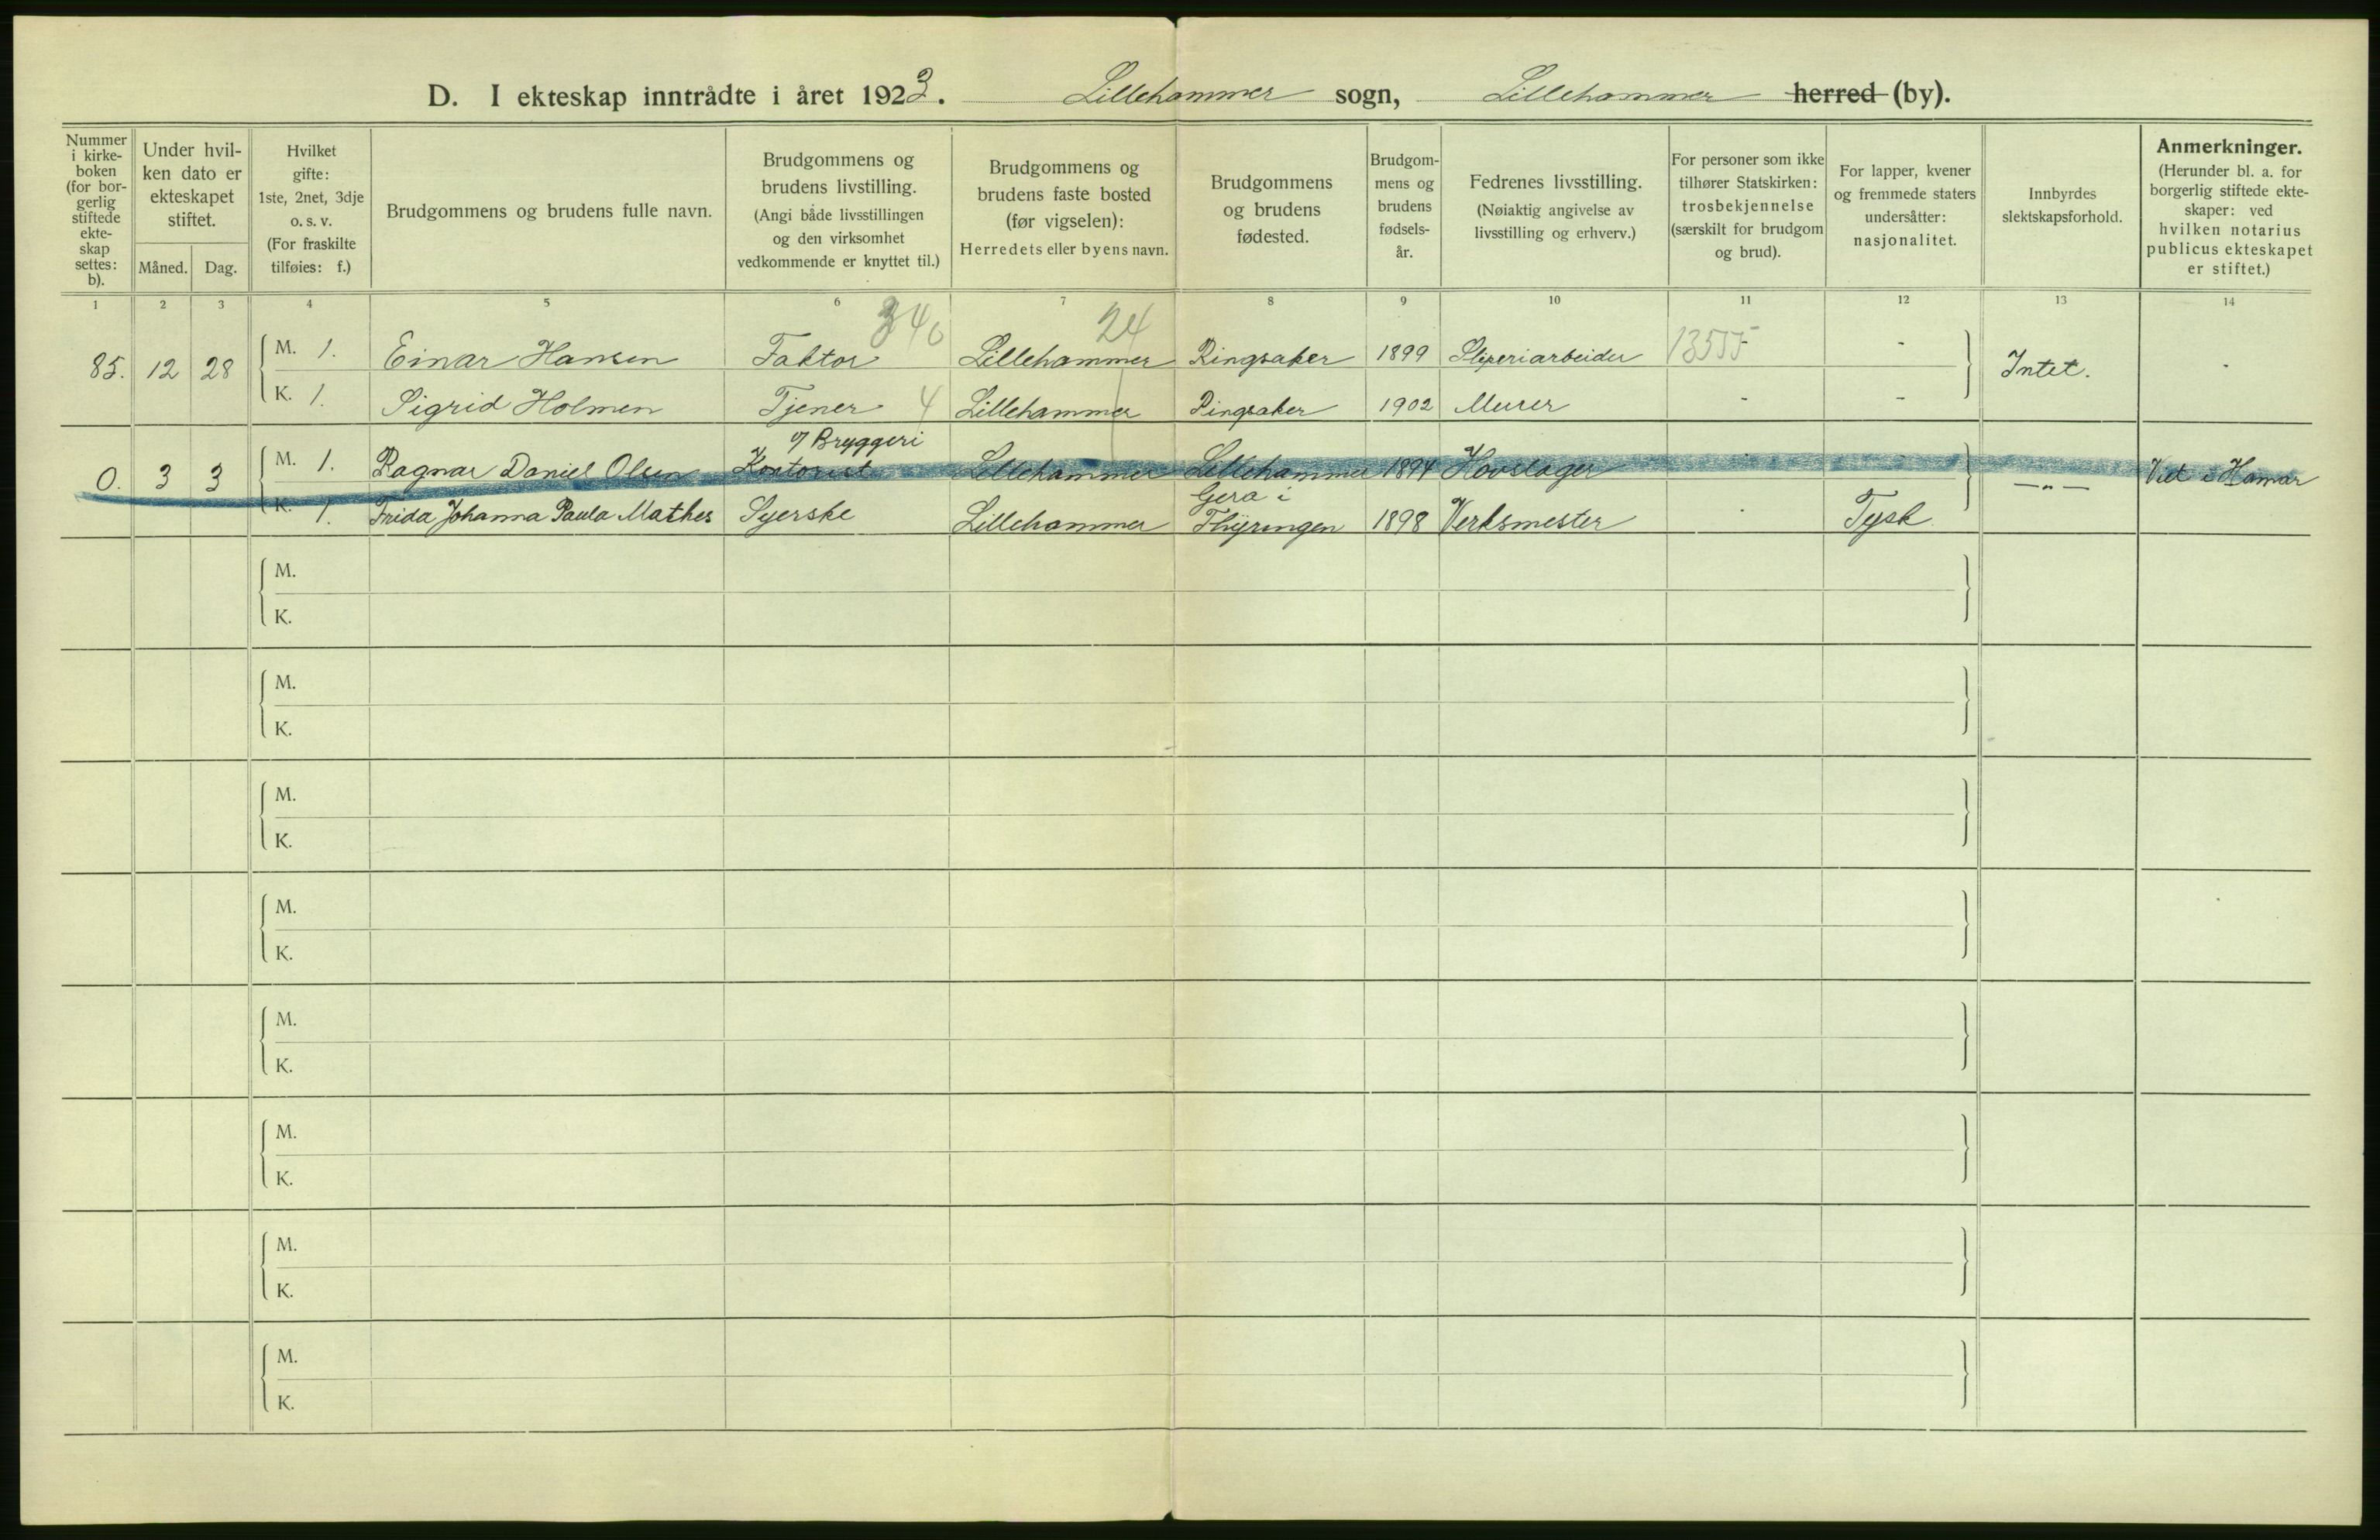 D. I ekteskap inntrådte i året 1923. Lillehammer sogn, Lillehammer herred (by).
Nummer i kirke-boken (for bor-gerlig stiftede ekte-skap settes: b).
Under hvil-ken dato er ekteskapet stiftet.
Måned. Dag.
Hvilket gifte: 1ste, 2net, 3dje o. s. v. (For fraskilte tilføies: f.)
Brudgommens og brudens fulle navn.
Brudgommens og brudens livstilling. (Angi både livsstillingen og den virksomhet vedkommende er knyttet til.)
Brudgommens og brudens faste bosted (før vigselen): Herredets eller byens navn.
Brudgommens og brudens fødested.
Brudgom-mens og brudens fødsels-år.
Fedrenes livsstilling. (Nøiaktig angivelse av livsstilling og erhverv.)
For personer som ikke tilhører Statskirken: trosbekjennelse (særskilt for brudgom og brud).
For lapper, kvener og fremmede staters undersåtter: nasjonalitet.
Innbyrdes slektskapsforhold.
Anmerkninger. (Herunder bl. a. for borgerlig stiftede ekte-skaper: ved hvilken notarius publicus ekteskapet er stiftet.)
1 2 3 4 5 6 7 8 9 10 11 12 13 14
340 24
85. 12 28 M. 1. Einar Hansen Faktor Lillehammer Ringsaker 1899 Sliperiarbeider 1355 - Intet. -
K. 1. Sigrid Holmen Tjener 4 Lillehammer Ringsaker 1902 Murer - -
v/ Bryggeri
0. 3 3 M. 1. Ragnar Daniel Olsen Kontorist Lillehammer Lillehammer 1894 Hovslager - - —„— Viet i Hamar
Gera i
K. 1. Frida Johanna Paula Mathes Syerske Lillehammer Thÿringen 1898 Verksmester - Tysk
M.
K.
M.
K.
M.
K.
M.
K.
M.
K.
M.
K.
M.
K.
M.
K.